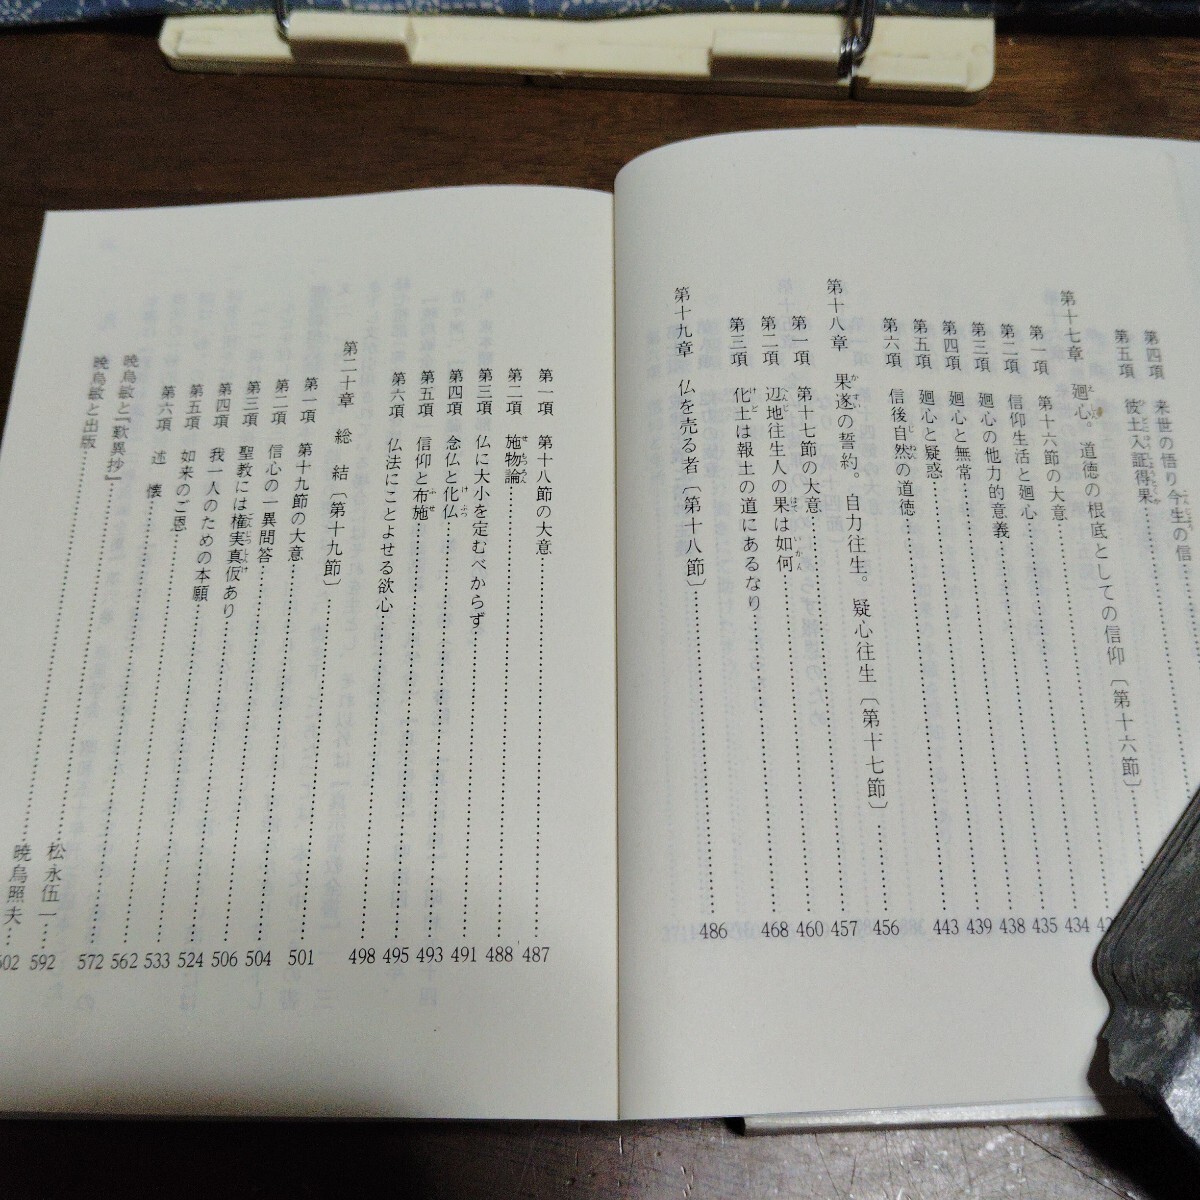 第四項 来世の悟り今生の信
第五項 彼土入証得果
第十七章 廻心。道徳の根底としての信仰〔第十六節〕
第一項 第十六節の大意
第二項 信仰生活と廻心 434
第三項 廻心の他力的意義 435
第四項 廻心と無常 438
第五項 廻心と疑惑 439
第六項 信後自然の道徳 443
第十八章 果遂の誓約。自力往生。疑心往生〔第十七節〕 456
第一項 第十七節の大意 457
第二項 辺地往生人の果は如何 460
第三項 化土は報土の道にあるなり 468
第十九章 仏を売る者〔第十八節〕 486
第一項 第十八節の大意 487
第二項 施物論 488
第三項 仏に大小を定むべからず 491
第四項 念仏と化仏 493
第五項 信仰と布施 495
第六項 仏法にことよせる欲心 498
第二十章 総結〔第十九節〕 501
第一項 第十九節の大意 504
第二項 信心の一異問答 506
第三項 聖教には権実真仮あり 524
第四項 我一人のための本願 533
第五項 如来のご恩 562
第六項 述懐 572
暁烏敏と『歎異抄』 松永伍一 592
暁烏敏と出版 暁烏照夫 602